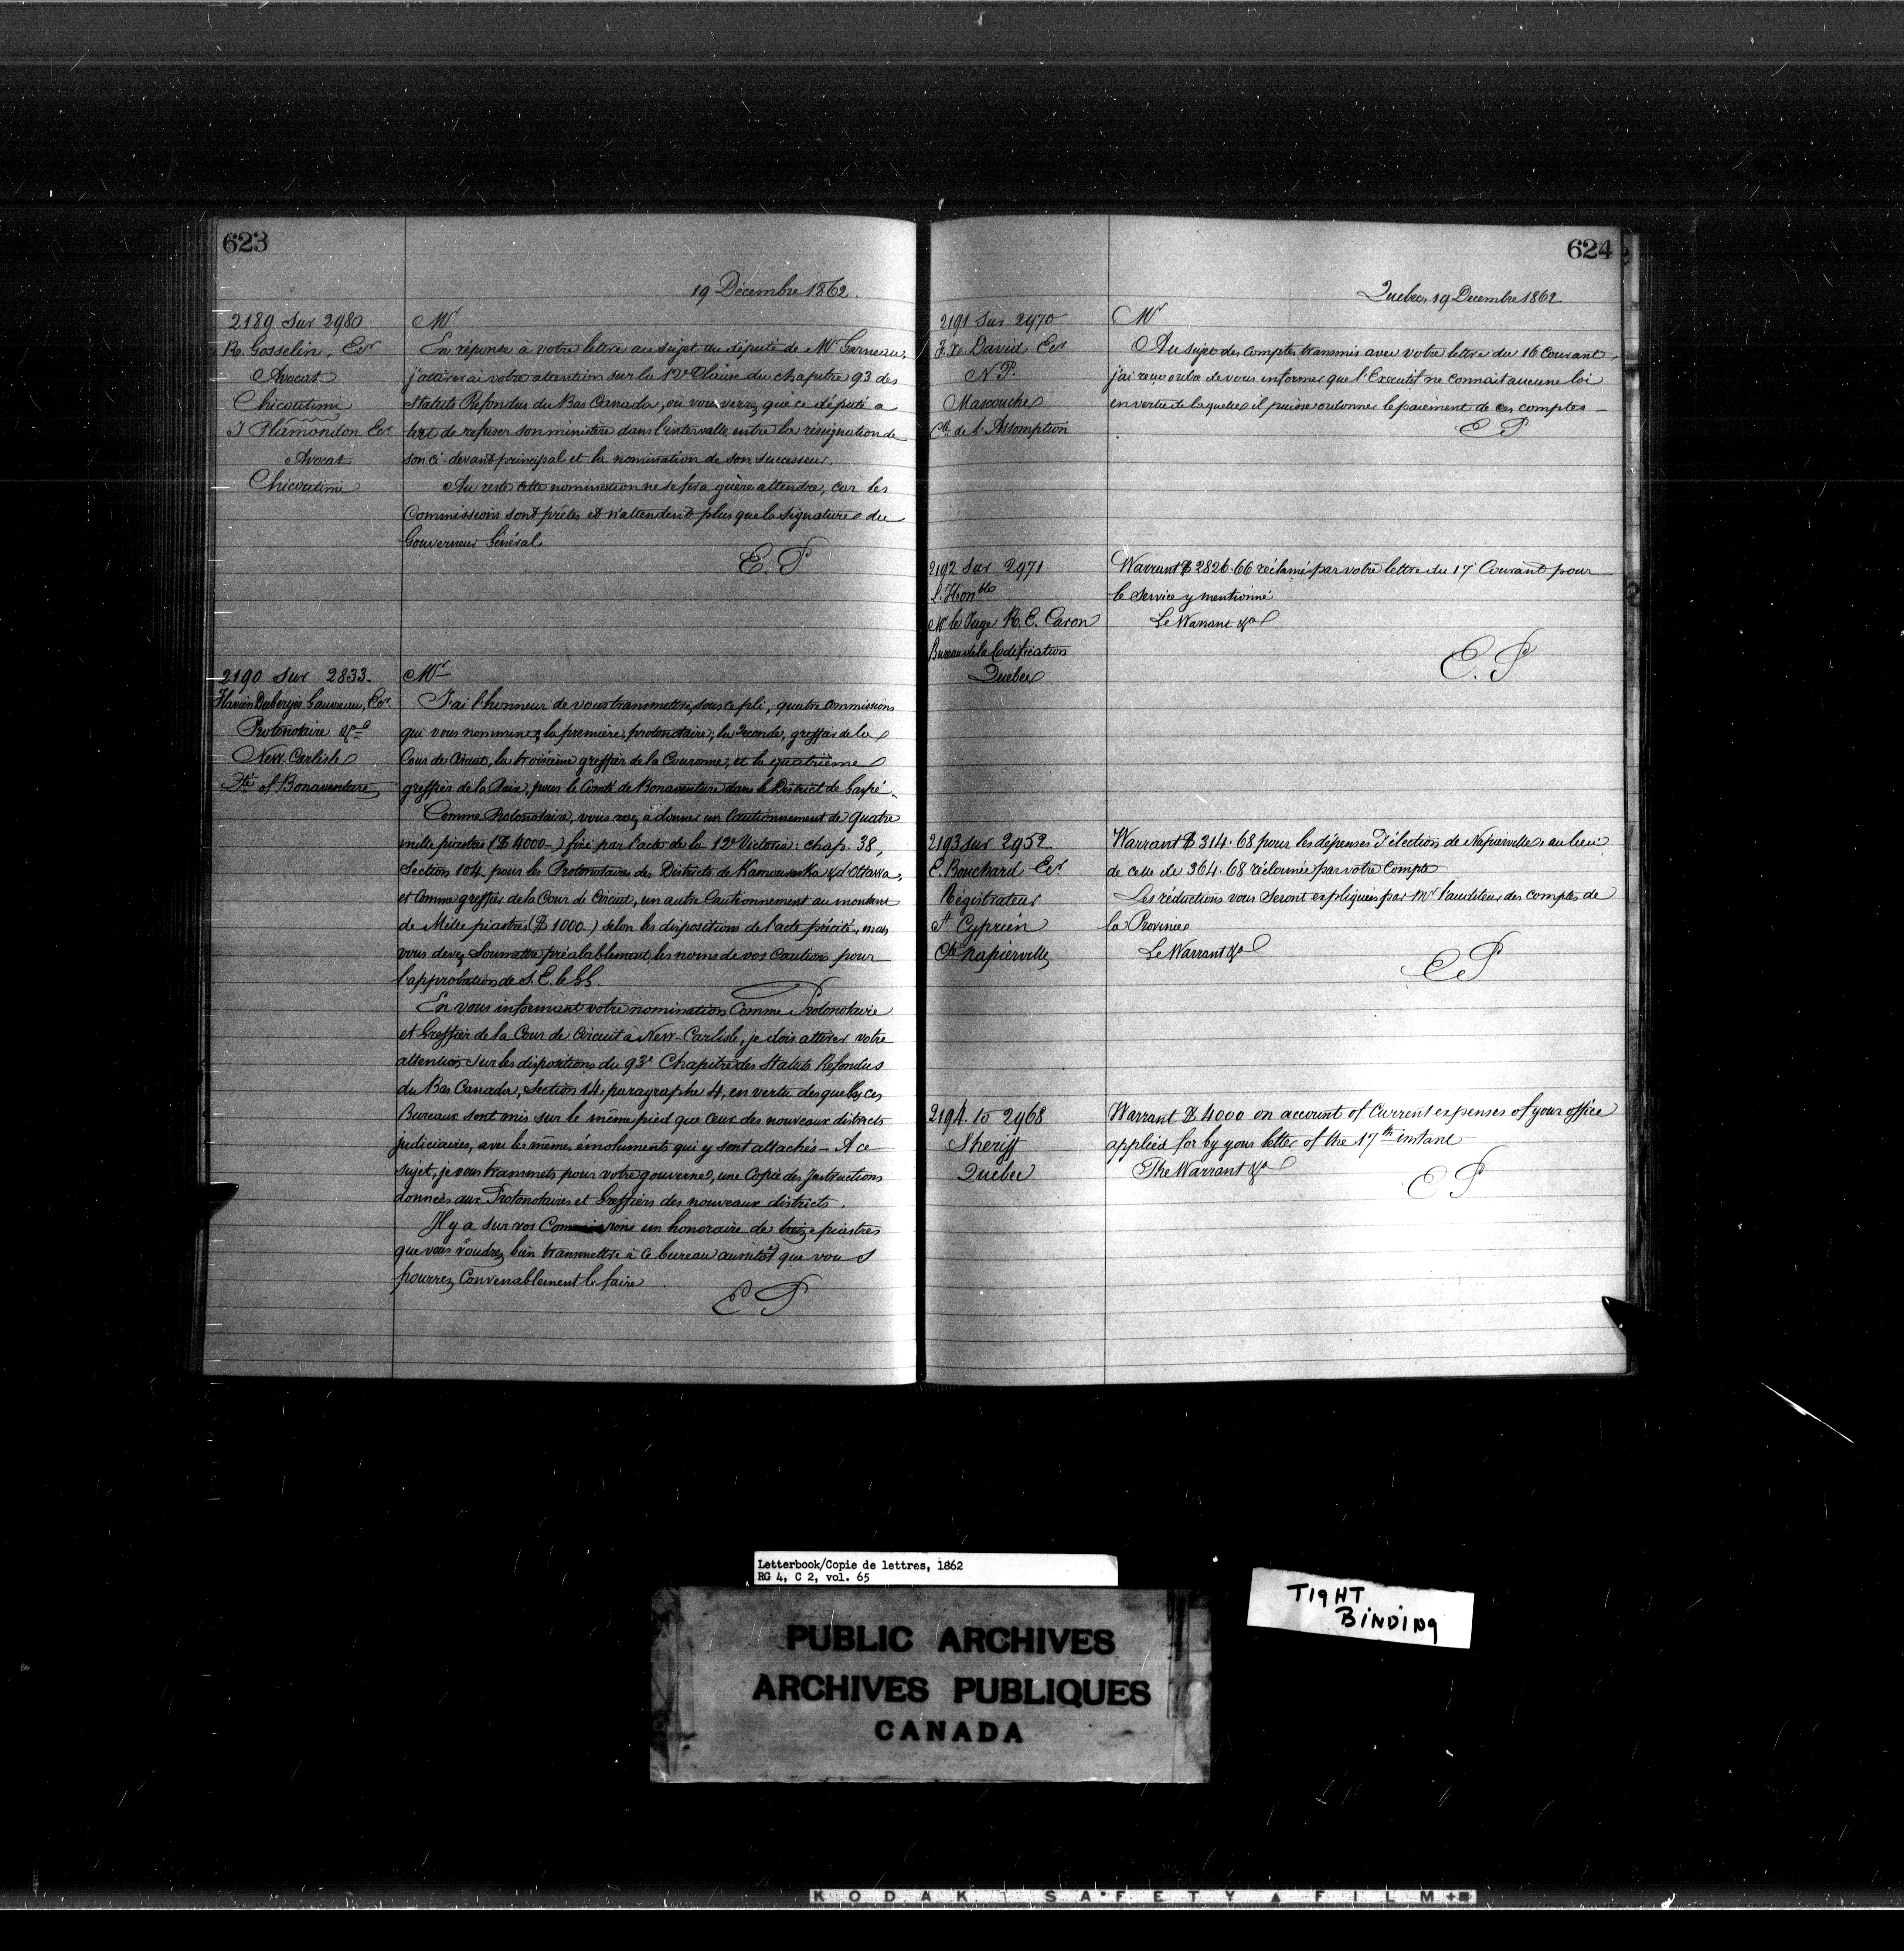 623
19 Décembre 1862.
2189 Sur 2980
R. Gosselin, Ecr
Avocat
Chicoutimi
J Plamondon Ecr
Avocat
Chicoutimi
Mr
En réponse à votre lettre au sujet du député de Mr Garneau,
j'attirerai votre attention sur la 12e Clause du chapitre 93 des
Statuts Refondus du Bas Canada, où vous verrez que ce député a
tort de refuser son ministère dans l'intervalle entre la résignation de
son ci-devant principal et la nomination de son successeur.
Au reste cette nomination ne se fera guère attendre, car les
Commissions sont prêtes et n'attendent plus que la signature du
Gouverneur Général.
E. P
2190 Sur 2833-
Flavien Duberges Gauvreau, Ecr
Protonotaire &c
New-Carlisle
Cté of Bonaventure
Mr
J'ai l'honneur de vous transmettre, sous ce pli, quatre commissions
qui vous nomment, la première, protonotaire, la seconde, greffier de la
Cour de Circuit, la troisième greffier de la Couronne, et la quatrième
greffier de la Paix, pour le Comté de Bonaventure dans le District de Gaspé.
Comme Protonotaire, vous avez à donner un Cautionnement de quatre
mille piastres ($4000-) fixé par l'acte de la 12e Victoria: chap. 38,
Section 104 pour les Protonotaires des Districts de Kamouraska & d'Ottawa,
et Comme greffier de la Cour de Circuit, un autre Cautionnement au montant
de Mille piastres ($1000-) selon les dispositions de l'acte précité, mais
vous devez Soumettre préalablement les noms de vos Cautions pour
l'approbation de S. E. le GG.
En vous informant votre nomination Comme Protonotaire
et Greffier de la Cour de Circuit à New-Carlisle, je dois attirer votre
attention sur les dispositions du 93e Chapitre des Statuts Refondus
du Bas Canada, Section 14, paragraphe 4, en vertu desquelles ces
Bureaux sont mis sur le même pied que ceux des nouveaux districts
judiciaires, avec les mêmes émoluments qui y sont attachés - A ce
sujet, je vous transmets pour votre gouverne, une Copie des Instructions
données aux Protonotaires et Greffiers des nouveaux districts.
Il y a sur vos Commissions un honoraire de treize piastres
que vous voudrez bien transmettre à ce bureau aussitôt que vous
pourrez Convenablement le faire.
E P
624
Quebec, 19 Decembre 1862
2191 Sur 2970
F. X. David Ecr
N. P.
Mascouche
Cté de L'Assomption
Mr
Au sujet des Comptes transmis avec votre lettre du 16 Courant,
j'ai reçu ordre de vous informer que l'Executif ne connait aucune loi
en vertu de laquelle il puisse ordonner le paiement de ces comptes -
E P
2192 Sur 2971
L'Honble
Mr le Juge R. E. Caron
Bureau de la Codification
Quebec
Warrant $2826.66 réclamé par votre lettre du 17 Courant pour
le Service y mentionné
Le Warrant &a
E. P
2193 Sur 2952
E. Bouchard Ecr
Régistrateur
St Cyprien
Cté Napierville
Warrant $314.68 pour les dépenses d'élection de Napierville, au lieu
de celle de 364.68 réclamée par votre Compte
Les réductions vous seront expliquées par Mr l'auditeur des comptes de
la Province
Le Warrant &a
E P
2194 to 2968
Sheriff
Quebec
Warrant $4000 on account of Current expenses of your office
applied for by your letter of the 17th instant
The Warrant &a
E P
Letterbook/Copie de lettres, 1862
RG 4, C 2, vol. 65
TIGHT
BINDING
PUBLIC ARCHIVES
ARCHIVES PUBLIQUES
CANADA
KODAK SAFETY ▲ FILM